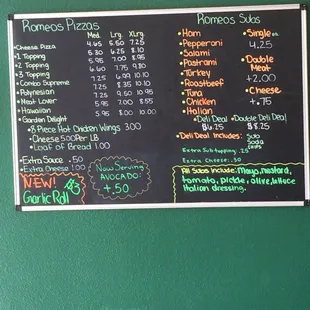 Romeos Pizzas
Med. Lrg. XLrg.
Cheese Pizza 4.65 5.50 7.25
1 Topping 5.30 6.25 8.10
2 Topping 5.95 7.00 8.95
3 Topping
Combo Supreme
Polynesian
Meat Lover
Hawaiian 5.95 7.00 8.55
Garden Delight
8 Piece Hot Chicken Wings 3.00
Cheese 5.00 Per LB
Loaf of Bread 1.00
Extra Sauce .50
Extra Cheese 1.00
NEW!
Garlic Roll
Now Serving
AVOCADO!
+.50
Romeos Subs
Ham
Pepperoni
Salami
Pastrami
Turkey
Roastbeef
Tuna
Chicken
Italian
Single
4.25
Double
Meat
+2.00
Cheese
+.75
Deli Deal Double Deli Deal
$6.25 $8.25
Deli Deal Includes: Sub
Soda
Chips
Extra Sub topping .25
Extra Cheese .50
All Subs Include: Mayo, mustard,
tomato, pickle, olive, lettuce
Italian dressing.